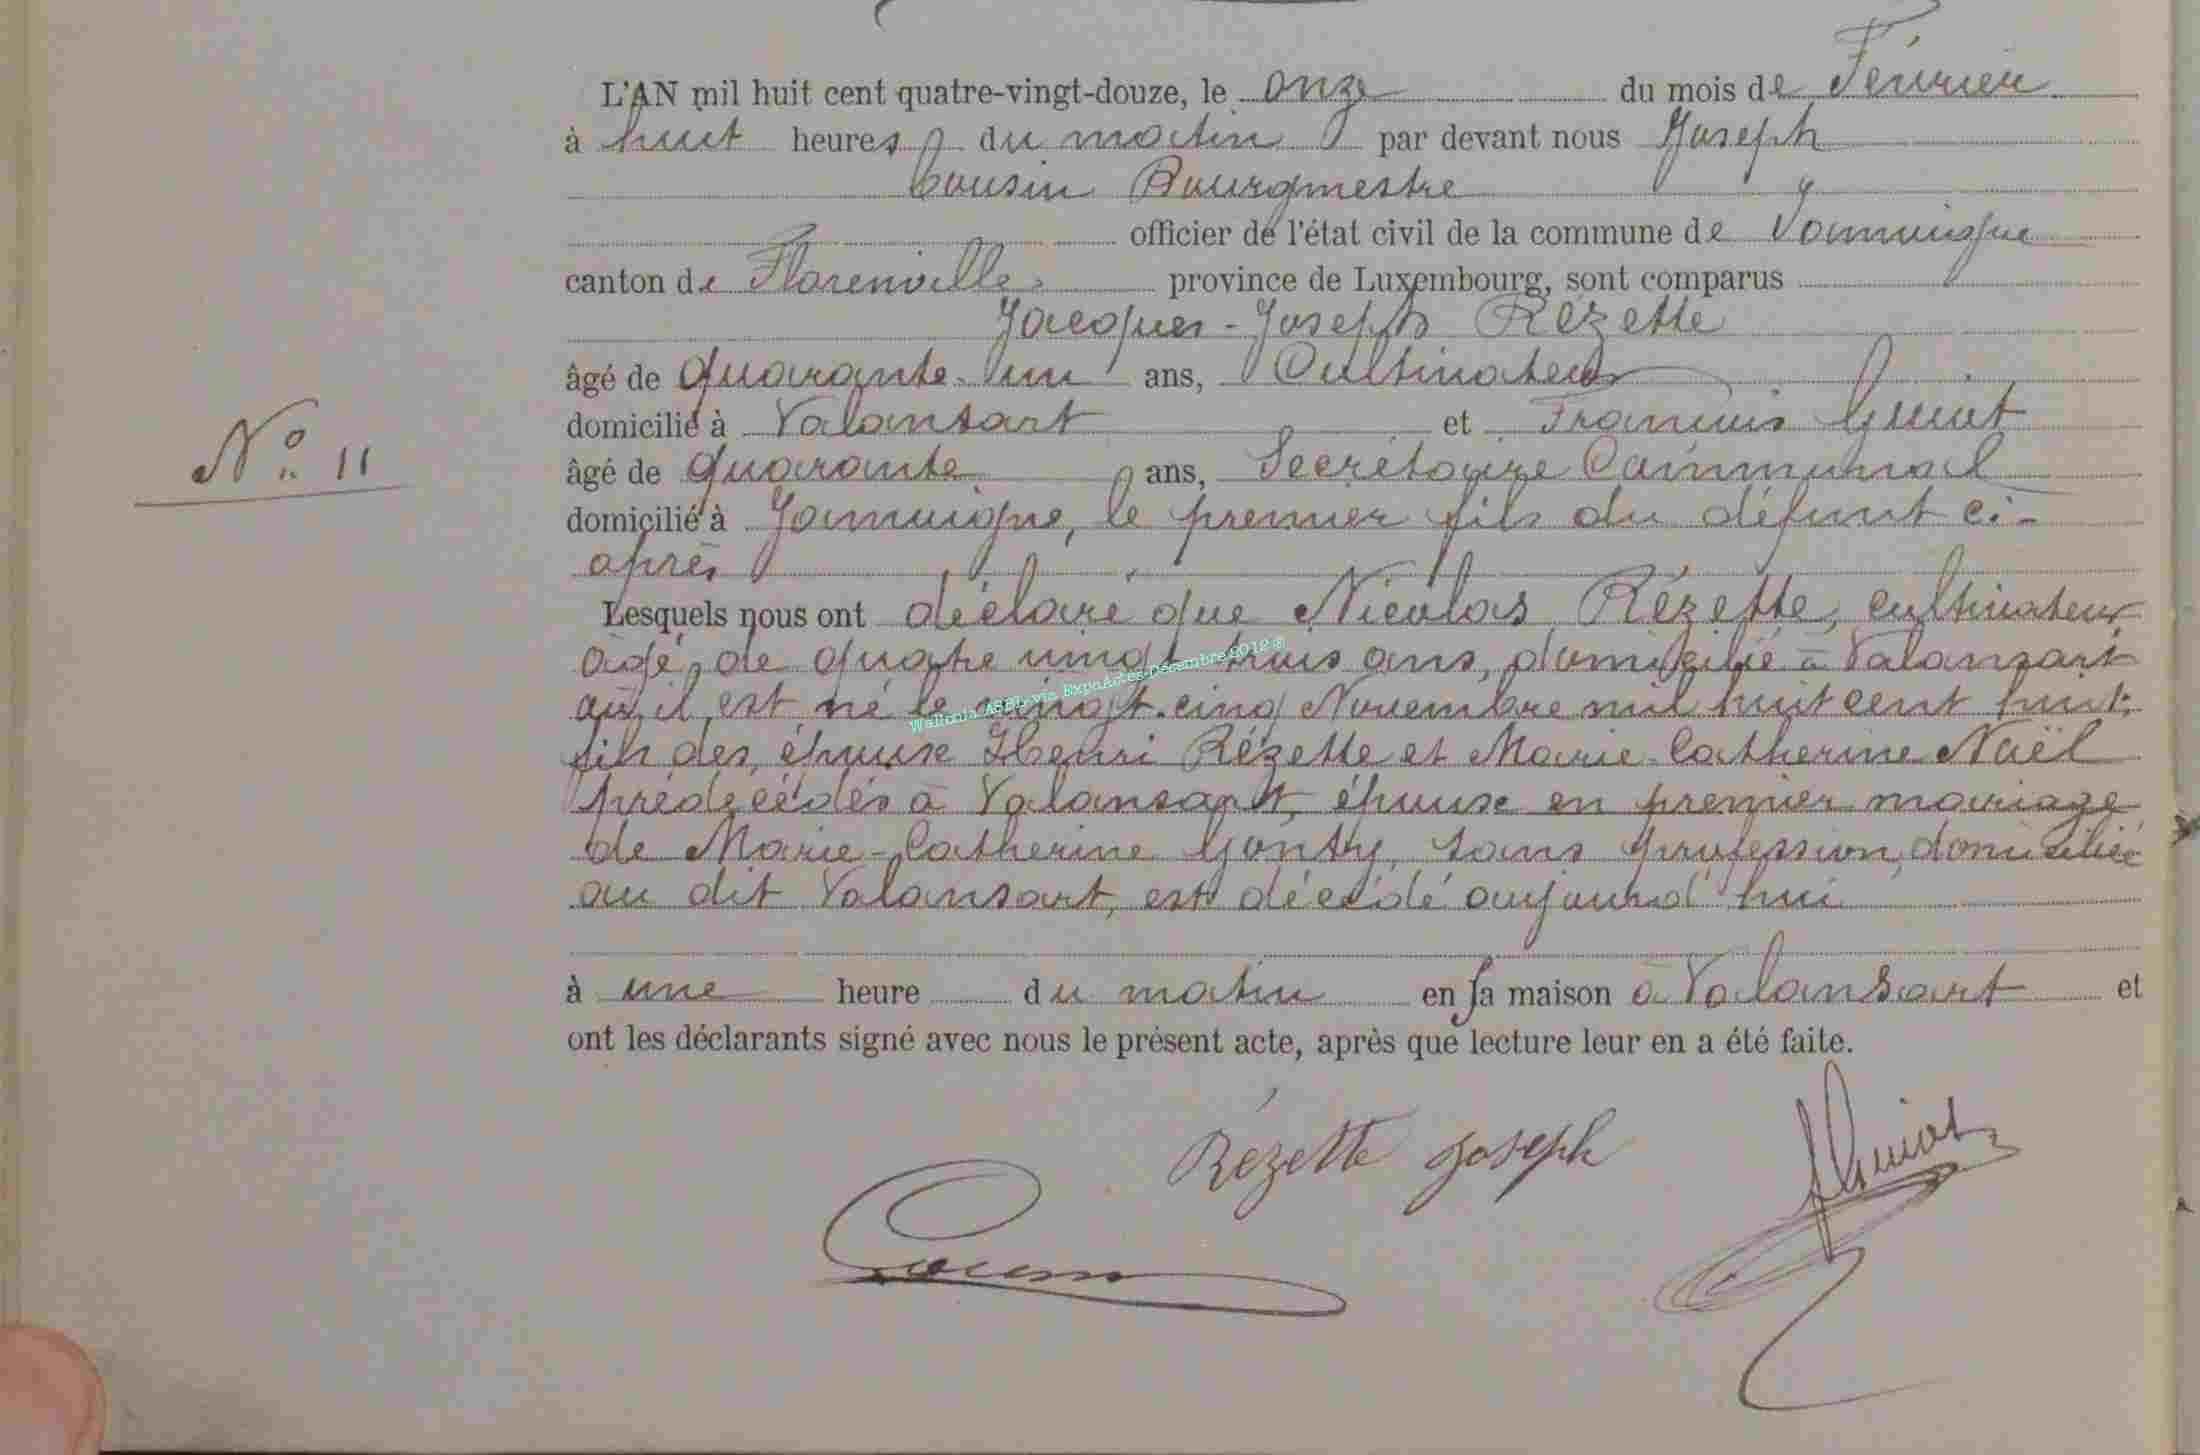 L'AN mil huit cent quatre-vingt-douze, le onze du mois de Février
à huit heures du matin par devant nous Joseph
Cousin Bourgmestre
officier de l'état civil de la commune de Jamoigne
canton de Florenville province de Luxembourg, sont comparus
Jacques-Joseph Rézette
âgé de quarante-un ans, Cultivateur
domicilié à Valansart et François Guiot
N° 11
âgé de quarante ans, Secrétaire Communal
domicilié à Jamoigne, le premier fils du défunt ci-
après
Lesquels nous ont déclaré que Nicolas Rézette, cultivateur
âgé de quatre vingt trois ans, domicilié à Valansart
où il est né le vingt-cinq Novembre mil huit cent huit,
fils des époux Henri Rézette et Marie-Catherine Noël
prédécédés à Valansart, époux en premier mariage
de Marie-Catherine Gonry, sans profession, domiciliée
au dit Valansart, est décédé aujourd'hui
à une heure du matin en sa maison à Valansart et
ont les déclarants signé avec nous le présent acte, après que lecture leur en a été faite.
Rézette Joseph
FGuiot
Cousin
Wallonia ASBL via ExpoActes-Décembre 2012 ®